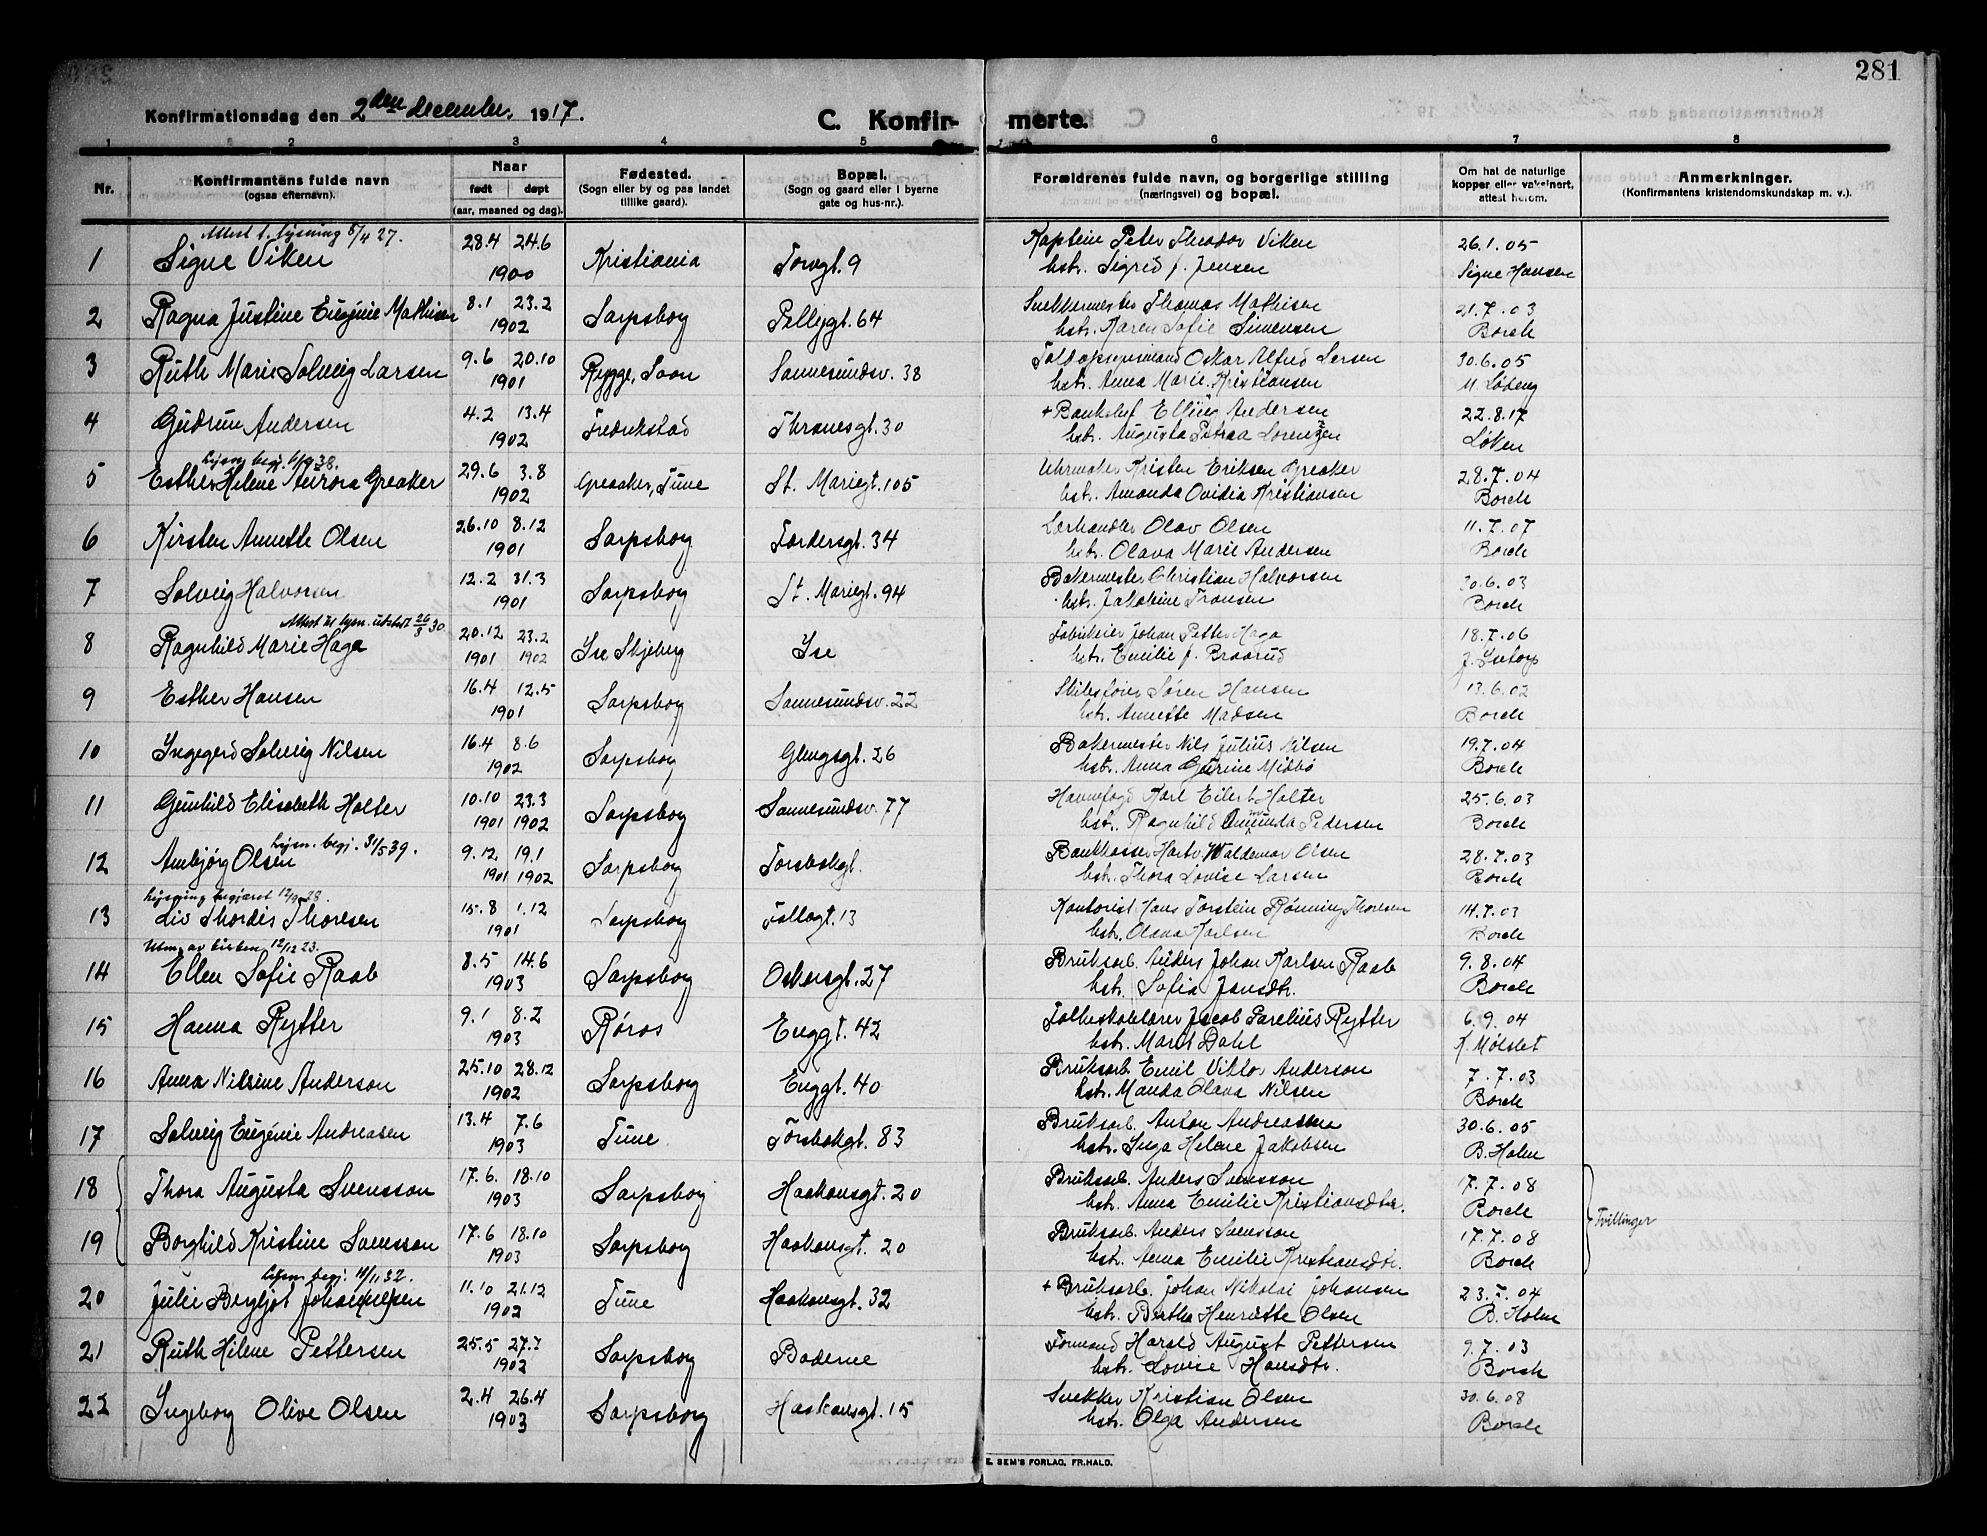 281
Konfirmationsdag den 2den december, 1917.
C. Konfir- merte.
1 2 3 4 5 6 7 8
Nr.
Konfirmantens fulde navn
(ogsaa efternavn).
Naar
født døpt
(aar, maaned og dag).
Fødested.
(Sogn eller by og paa landet
tillike gaard).
Bopæl.
(Sogn og gaard eller i byerne
gate og hus-nr.).
Forældrenes fulde navn, og borgerlige stilling
(næringsvei) og bopæl.
Om hat de naturlige
kopper eller vaksinert,
attest herom.
Anmerkninger.
(Konfirmantens kristendomskundskap m. v.).
Attest t. lysning 5/4 27.
1 Signe Viken 28.4 24.6 1900 Kristiania Torvgt. 9 Kaptein Peter Theodor Viken 26.1.05
hstr. Sigrid f. Jensen Signe Hansen
2 Ragna Justine Eugénie Mathisen 8.1 23.2 1902 Sarpsborg Pellygt. 64 Snekkermester Thomas Mathisen 21.7.03
hstr. Karen Sofie Simensen Borch
3 Ruth Marie Solveig Larsen 9.6 20.10 1901 Rygge, Soon Sannesundsv. 38 Toldopsynsmand Oskar Alfred Larsen 30.6.05
hstr. Anna Marie Kristiansen M. Løberg
4 Gudrun Andersen 4.2 13.4 1902 Fredrikstad Thranesgt. 30 + Bankchef Elling Andersen 22.8.17
hstr. Augusta Petrea Lorentzen Løken
Lysn. begj. 1/9 38.
5 Esther Helene Aurora Greaker 29.6 3.8 1902 Greaaker, Tune St. Mariegt. 105 Uhrmaker Kristen Eriksen Greaker 28.7.04
hstr. Amanda Ovidia Kristiansen Borch
6 Kirsten Annette Olsen 26.10 8.12 1901 Sarpsborg Tordersgt. 34 Lærhandler Olav Olsen 11.7.07
hstr. Olava Marie Andersen Borch
7 Solveig Halvorsen 12.2 31.3 1901 Sarpsborg St. Mariegt. 94 Bakermester Christian Halvorsen 30.6.03
hstr. Jakobine Fransen Borch
Attest til lysn. utstedt 26/3 30.
8 Ragnhild Marie Haga 20.12 1901 23.2 1902 Ise Skjeberg Ise Fabrikeier Johan Petter Haga 18.7.06
hstr. Emilie f. Braarud
9 Esther Hansen 16.4 12.5 1901 Sarpsborg Sannesundsv. 22 Skibsfører Søren Hansen 13.6.02
hstr. Annette Madsen Borch
10 Ingegerd Solveig Nilsen 16.4 8.6 1902 Sarpsborg Glengsgt. 26 Bakermester Nils Julius Nilsen 19.7.04
hstr. Anna Gurine Midbø Borch
11 Gunhild Elisabeth Holter 10.10 1901 23.3 1902 Sarpsborg Sannesundsv. 77 Havnefogd Karl Eilert Holter 25.6.03
hstr. Ragnhild Amunda Pedersen Borch
Lysn. begj. 31/5 39.
12 Arnbjørg Olsen 9.12 1901 19.1 1902 Sarpsborg Torsbekgt. Bankkasser Hartv. Waldemar Olsen 28.7.03
hstr. Thora Lovise Larsen Borch
Lysning begjæret 12/9 28.
13 Liv Thordis Thoresen 15.8 1.12 1901 Sarpsborg Follogt. 13 Kontorist Hans Torstein Rønning Thoresen 14.7.03
hstr. Olava Karlsen Borch
Utm. av kirken 12/12 23.
14 Ellen Sofie Raab 8.5 14.6 1903 Sarpsborg Oskarsgt. 27 Bruksarb. Anders Johan Karlsen Raab 9.8.04
hstr. Sofia Jansdtr. Borch
15 Hanna Rytter 9.1 8.2 1903 Røros Enggt. 42 Folkeskolelærer Jacob Parelius Rytter 6.9.04
hstr. Marit Dahl K. Mølslet
16 Anna Nilsine Anderson 25.10 28.12 1902 Sarpsborg Enggt. 40 Bruksarb. Emil Viktor Anderson 7.7.03
hstr. Manda Olava Nilsen Borch
17 Solveig Eugénie Andreasen 13.4 7.6 1903 Tune Torsbekgt. 83 Bruksarb. Anton Andreassen 30.6.05
hstr. Inga Helene Jakobsen B. Holm
18 Thora Augusta Svensson 17.6. 18.10 1903 Sarpsborg Haakonsgt. 20 Bruksarb. Anders Svensson 17.7.08
hstr. Anna Emilie Kristiansdtr. Borch
Tvillinger
19 Borghild Kristine Svensson 17.6 18.10 1903 Sarpsborg Haakonsgt. 20 Bruksarb. Anders Svensson 17.7.08
hstr. Anna Emilie Kristiansdtr. Borch
Lysn. begj. 11/11 32.
20 Julie Bergljot Johannesen 11.10 21.12 1902 Tune Haakonsgt. 32 + Bruksarb. Johan Nikolai Johansen 23.7.04
hstr. Bertha Henriette Olsen B. Holm
21 Ruth Helene Pettersen 25.5 27.7 1902 Sarpsborg Baderne Formand Harald August Pettersen 9.7.03
hstr. Lovise Hansdtr. Borch
22 Ingeborg Olive Olsen 2.4 26.4 1903 Sarpsborg Haakonsgt. 15 Snekker Kristian Olsen 30.6.08
hstr. Olga Andersen Borch
E. SEM'S FORLAG, FR.HALD.